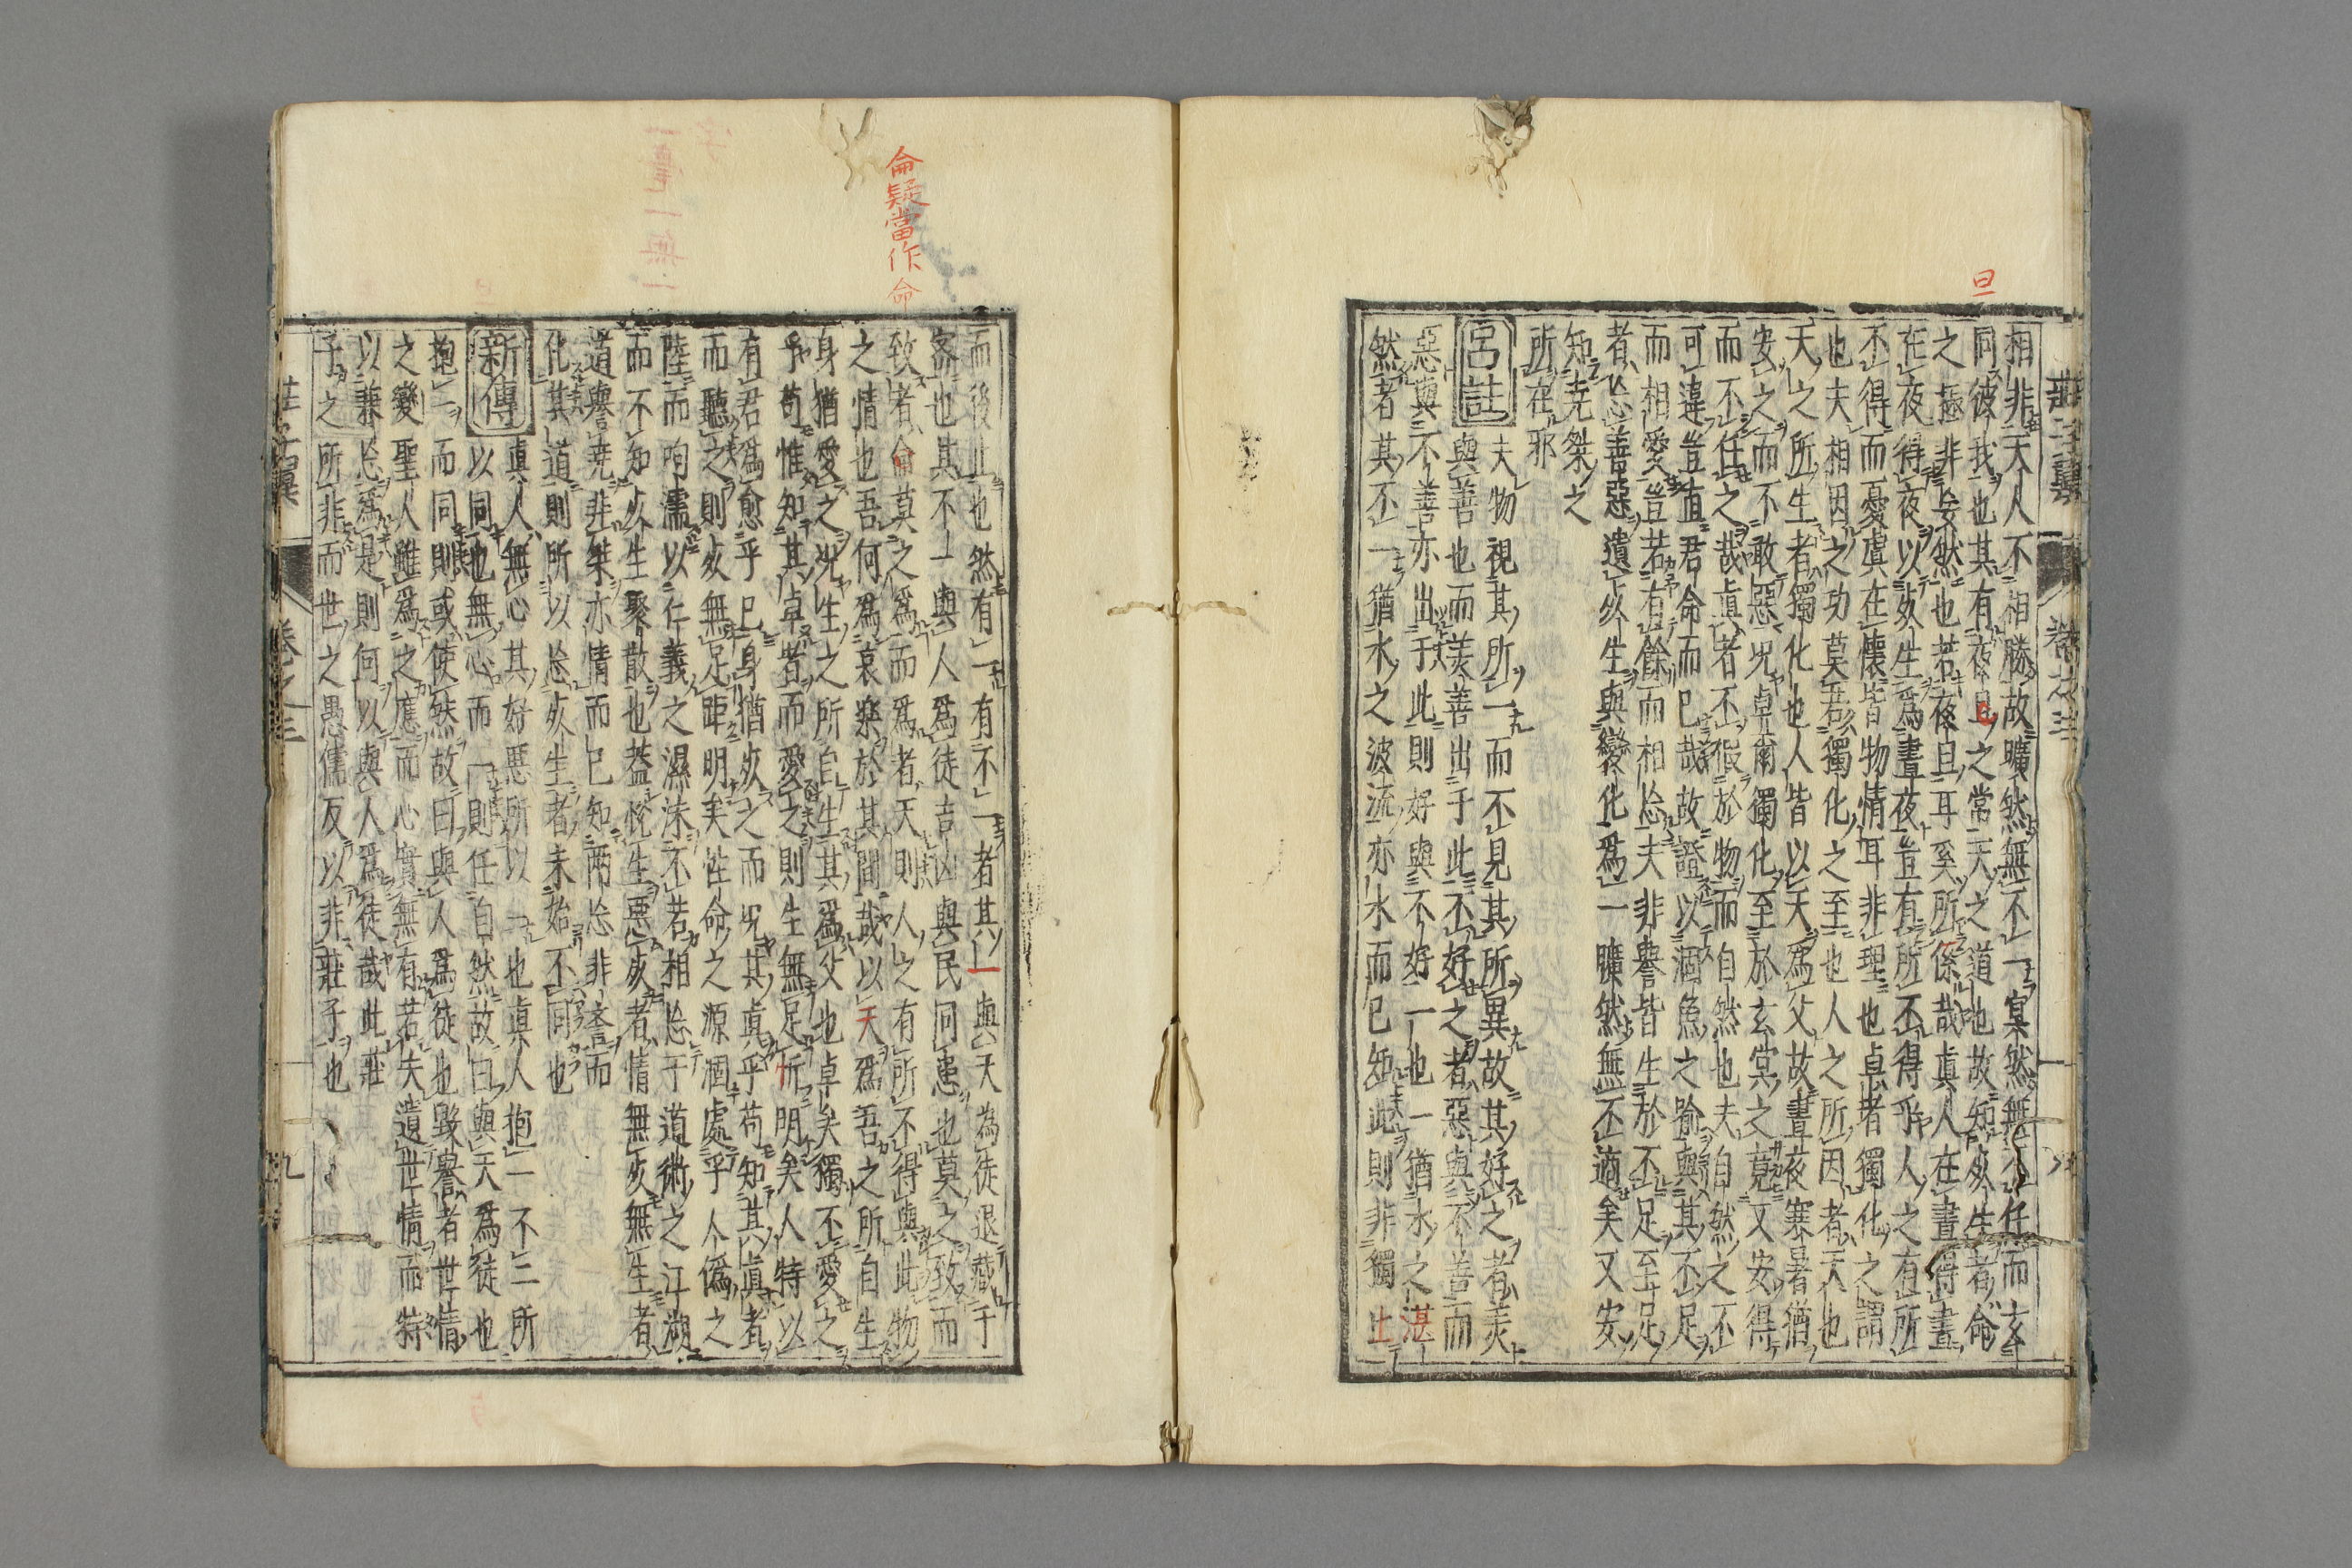 旦
相非天人不相勝故曠然無不一冥然無不任而玄
同彼我也其有夜旦之常天之道也故知死生者命
之極非妄然也若夜旦耳奚所係哉真人在晝得晝
在夜得夜以死生為晝夜豈有所不得乎人之有所
不得而憂虞在懷皆物情耳非理也卓者獨化之謂
也夫相因之功莫若獨化之至也人之所因者天也
天之所生者獨化也人皆以天為父故晝夜寒暑猶
安之而不敢惡况卓爾獨化至於玄冥之竟又安得
而不任之哉真者不假於物而自然也夫自然之不
可違豈直君命而已哉故證以涸魚之喻與其不足
而相愛豈若有餘而相忘夫非譽皆生於不足至足
者忘善惡遺死生與變化為一曠然無不適矣又安
知堯桀之
所在邪
呂註 夫物視其所一而不見其所異故其好之者美
與善也而美善出于此不好之者惡與不善而
惡與不善亦出于此則好與不好一也一猶水之湛
然者其不一猶水之波流亦水而已知此則非獨止
莊子翼 卷之三
侖疑當作命
而後止也然有一有不一者其一與天為徒退藏于
密也其不一與人為徒吉凶與民同患也莫之致而
致者侖莫之為而為者天則人之有所不得與此物
之情也吾何為哀樂於其間哉以天為吾之所自生
身猶愛之况生之所自生其為父也卓矣獨不愛之
乎苟惟知其卓者而愛之則生無足所明矣人特以
有君為愈乎已身猶死之而况其真乎苟知其真者
而聽之則死無足距明矣性命之源涸處乎人偽之
陸而呴濡以仁義之濕沫不若相忘于道術之江湖
而不知死生聚散也蓋悅生惡死者情無死無生者
道譽堯非桀亦情而已知兩忘非譽而
化其道則所以忘死生者未始不同也
新傳 真人無心其好惡所以一也真人抱一不二所
以同也無心而一則任自然故曰與天為徒也
抱一而同則或使然故曰與人為徒也毀譽者世情
之變聖人雖為之應而心實無有若夫遺世情而特
以兼忘為是則何以與人為徒哉此莊
子之所非而世之愚儒反以非莊子也
莊子翼 卷之三 九